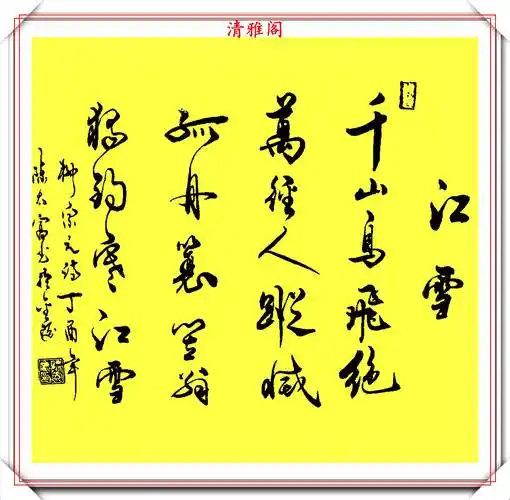 清雅阁
江雪
千山鳥飛絶
萬徑人蹤滅
孤舟蓑笠翁
獨釣寒江雪
柳宗元詩丁酉年
陳大富书